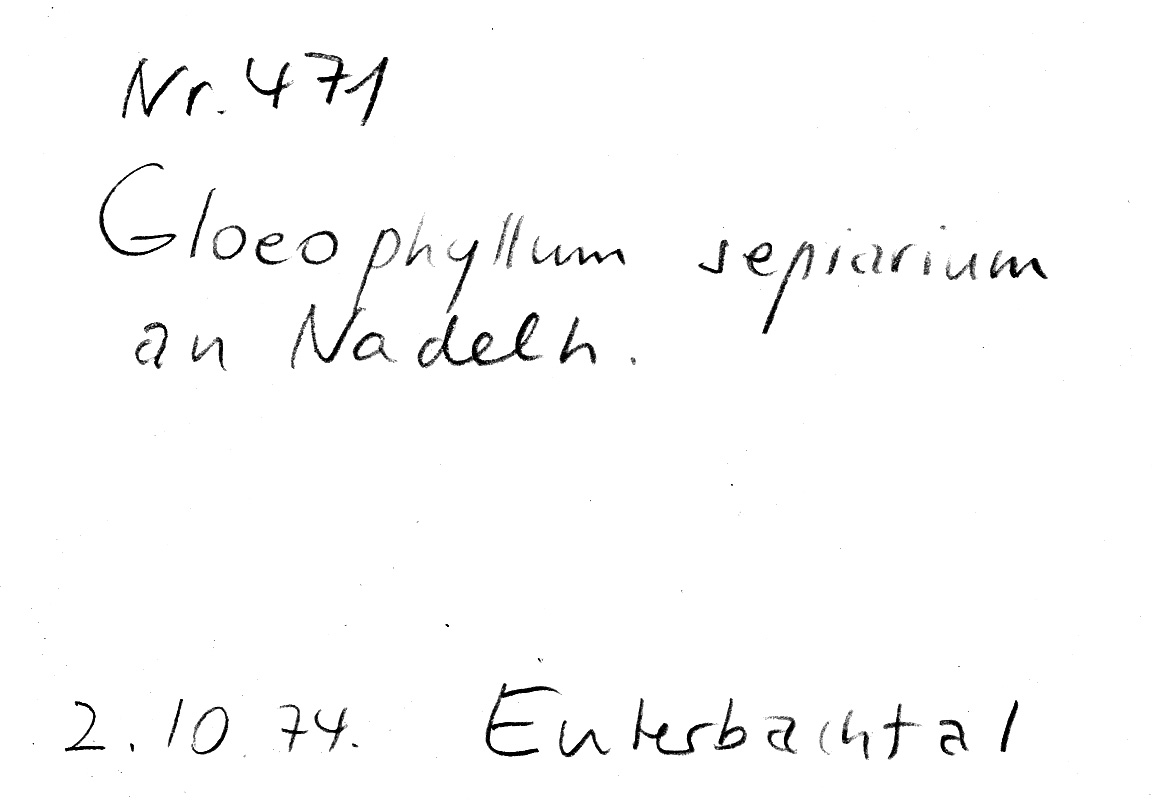 Nr. 471
Gloeophyllum sepiarium
an Nadelh.
2.10.74. Enterbachtal